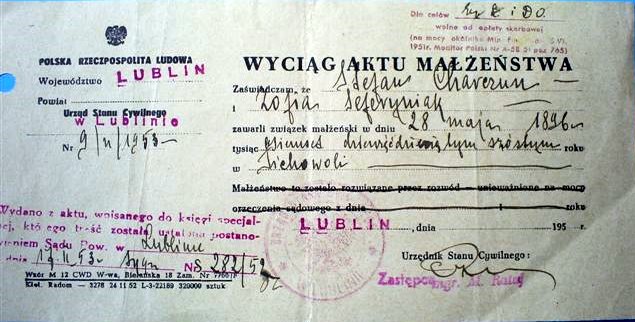 Dla celów Z i DO.
wolne od opłaty skarbowej
(na mocy okólnika Min. VI.
1951r. Monitor Polski Nr A-58 51 poz 765)
POLSKA RZECZPOSPOLITA LUDOWA
Województwo LUBLIN
Powiat
Urząd Stanu Cywilnego
w Lublinie
Nr 9/II/1953
WYCIĄG AKTU MAŁŻEŃSTWA
Zaświadczam, że Stefan
i Zofia Seferyniak
zawarli związek małżeński w dniu 28 maja 1896
tysiąc osiemset dziewięćdziesiątym szóstym roku
w
Małżeństwo to zostało rozwiązane przez rozwód — unieważnione na mocy
orzeczenia sądowego z dnia 1 roku
LUBLIN, dnia 195 r.
Wydano z aktu, wpisanego do księgi specjal-
nej, którego treść została ustalona postano-
wieniem Sądu Pow. w Lublinie
dnia 53. sygn Nr S 282/52
Urzędnik Stanu Cywilnego:
Zastępca mgr. M.
Wzór M 12 CWD W-wa, Bielańska 18 Zam. Nr
Kiel. Radom — 3278 24 11 52 L-3-22189 320000 sztuk